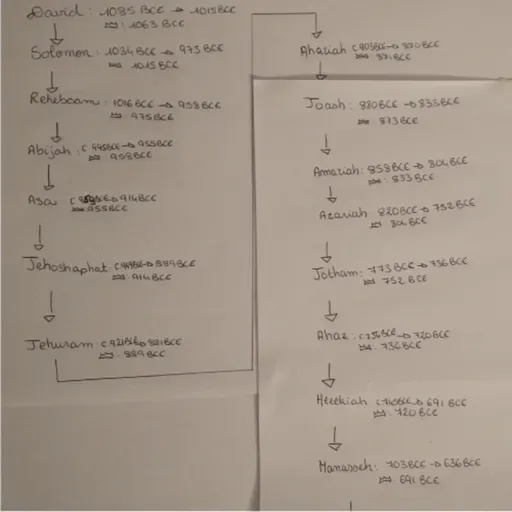 David : 1085 BCE → 1015 BCE
: 1063 BCE
Solomon : 1034 BCE → 975 BCE
: 1015 BCE
Rehoboam : 1016 BCE → 958 BCE
: 975 BCE
Abijah : → 955 BCE
: 958 BCE
Asa → 914 BCE
: 955 BCE
Jehoshaphat → 889 BCE
: 914 BCE
Jehuram → 881 BCE
: 889 BCE
Ahaziah → 880 BCE
: 881 BCE
Joash : 880 BCE → 833 BCE
: 873 BCE
Amaziah : 858 BCE → 804 BCE
: 833 BCE
Azariah 820 BCE → 752 BCE
: 804 BCE
Jotham : 773 BCE → 736 BCE
: 752 BCE
Ahaz : → 720 BCE
: 736 BCE
Hezekiah → 691 BCE
: 720 BCE
Manasseh : 703 BCE → 636 BCE
: 691 BCE